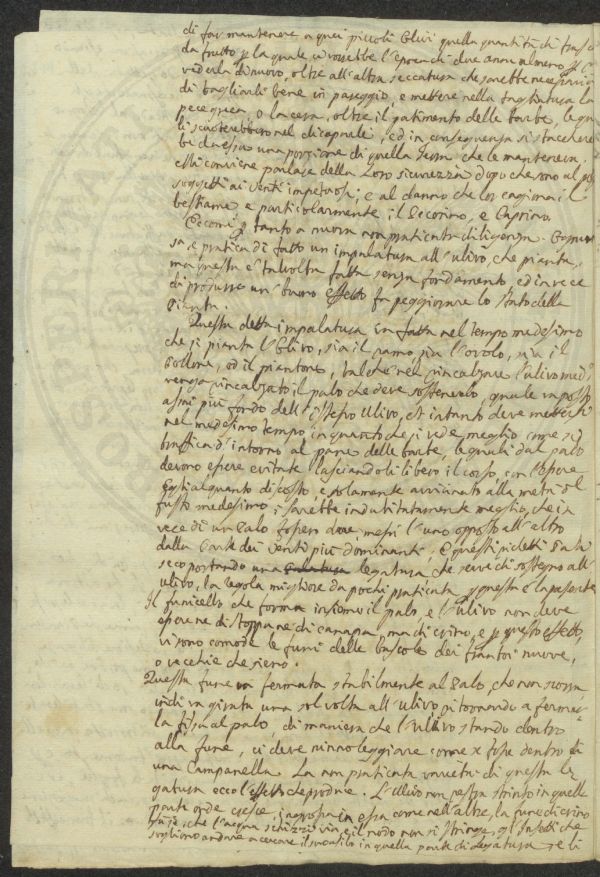 di far mantenere a quei piccoli Ulivi quella quantità di
da frutto la quale vi vorrebbe l'Epoca di due anni almeno
vederla di nuovo, oltre all'altra seccatura che sarebbe necessario
di tagliarli bene in passeggio, e mettere nella tagliatura la
pece greca, o la cera, oltre il patimento delle barbe, le qua
li sciuterebbero nel dicaprale, ed in conseguenza si stacchere
be da essa una porzione di quella Terra che le manteneva.
essi conviene parlare della Loro sicurezza dopo che sono al
soggetti ai venti impetuosi, e al danno che lor cagiona il
bestiame e particolarmente il Pecorino, e Caprino.
Eccomi tanto a nuova non praticata diligenza.
sa si pratica di fatto un impalatura all'Ulivo, che pianta
ma questa è talvolta fatta senza fondamento ed in vece
di produrre un buono effetto fa peggiorare lo stato della
Pianta.
Questa detta impalatura va fatta nel tempo medesimo
che si pianta l'Ulivo, sia il ramo, sia l'ovolo, sia il
Pollone, od il piantone, talché nel rincalzare l'ulivo med
venga rincalzato il palo che deve sostenerlo, quale va posto
assai più fondo dell'istesso Ulivo, et intanto deve mettersi
nel medesimo tempo in quanto che si vede meglio come si
traffica d'intorno al pane delle barbe, le quali dal palo
devono essere evitate lasciandoli libero il corso, con l'esser
egli alquanto discosto, e solamente avvicinato alla metà del
fusto medesimo; sarebbe indubitatamente meglio, che in
vece di un Palo fossero due, messi l'uno opposto all'altro
dalla Parte dei Venti più dominanti, e questi
seco portando una legatura che serve di sostegno all'
ulivo, la regola migliore da pochi praticata questa è la presente
Il funicello che forma insieme il palo, e l'ulivo non deve
essere ne di stoppa ne di canapa, ma di crino, e per questo effetto,
vi sono comode le funi delle bruscole dei frantoi nuove,
o vecchie che sieno.
Questa fune va fermata stabilmente al Palo, che non scorra
indi va girata una sol volta all'ulivo ritornando a fermar
la fissa al palo, di maniera che l'Ulivo stando dentro
alla fune, vi deve ninnoleggiare come se fosse dentro di
una Campanella. La non praticata varietà di questa le
gatura ecco l'effetto che produce. L'Ulivo non resta stretto in quella
parte onde cresce, ingrossa in essa come nell'altre, la fune di crino
fa sì, che l'acqua schizzi via e il nodo non si stringe, gl'Insetti che
vogliono andare a cercare il suo asilo in quella parte di Legatura, e li